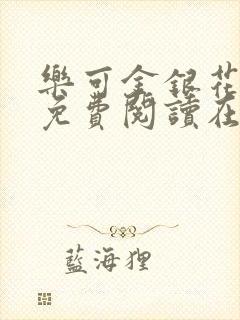 樂可金銀花
免費閱讀在
藍海狸